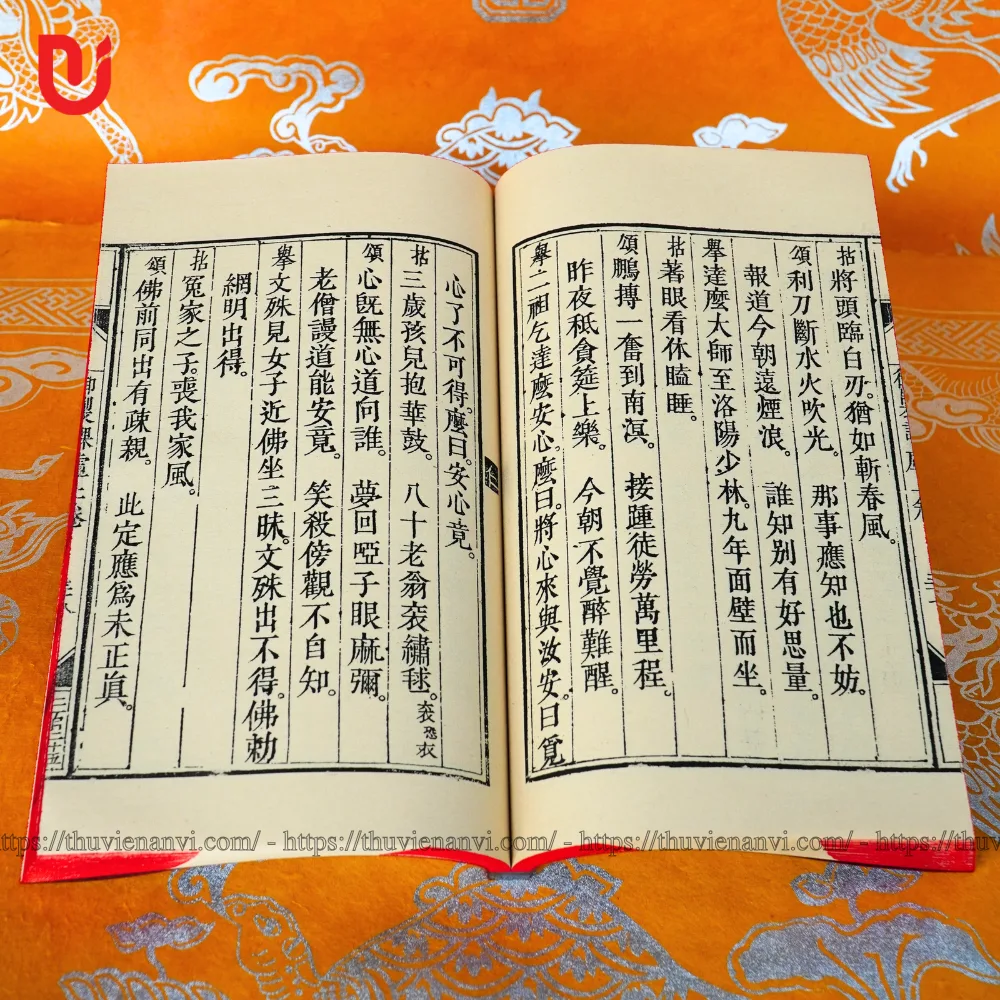 拈將頭臨白刃。猶如斬春風。
頌利刀斷水火吹光。 那事應知也不妨。
報道今朝遠煙浪。 誰知別有好思量。
舉達麼大師至洛陽少林。九年面壁而坐。
拈著眼看休瞌睡。
頌鵬摶一奮到南溟。 接踵徒勞萬里程。
昨夜秪貪筵上樂。 今朝不覺醉難醒。
舉二祖乞達麼安心。麼曰。將心來與汝安。曰覓
心了不可得。麼曰。安心竟。
拈三歲孩兒抱華鼓。 八十老翁衮繡毬。衮恐衣
頌心旣無心道向誰。 夢回啞子眼麻彌。
老僧謾道能安竟。 笑殺傍觀不自知。
舉文殊見女子近佛坐三昧。文殊出不得。佛勅
網明出得。
拈冤家之子。喪我家風。
頌佛前同出有疎親。 此定應爲未正眞。
https://thuvienanvi.com/ - https://thuvienanvi.com/ - https://thuvienanvi.com/ - https://thu